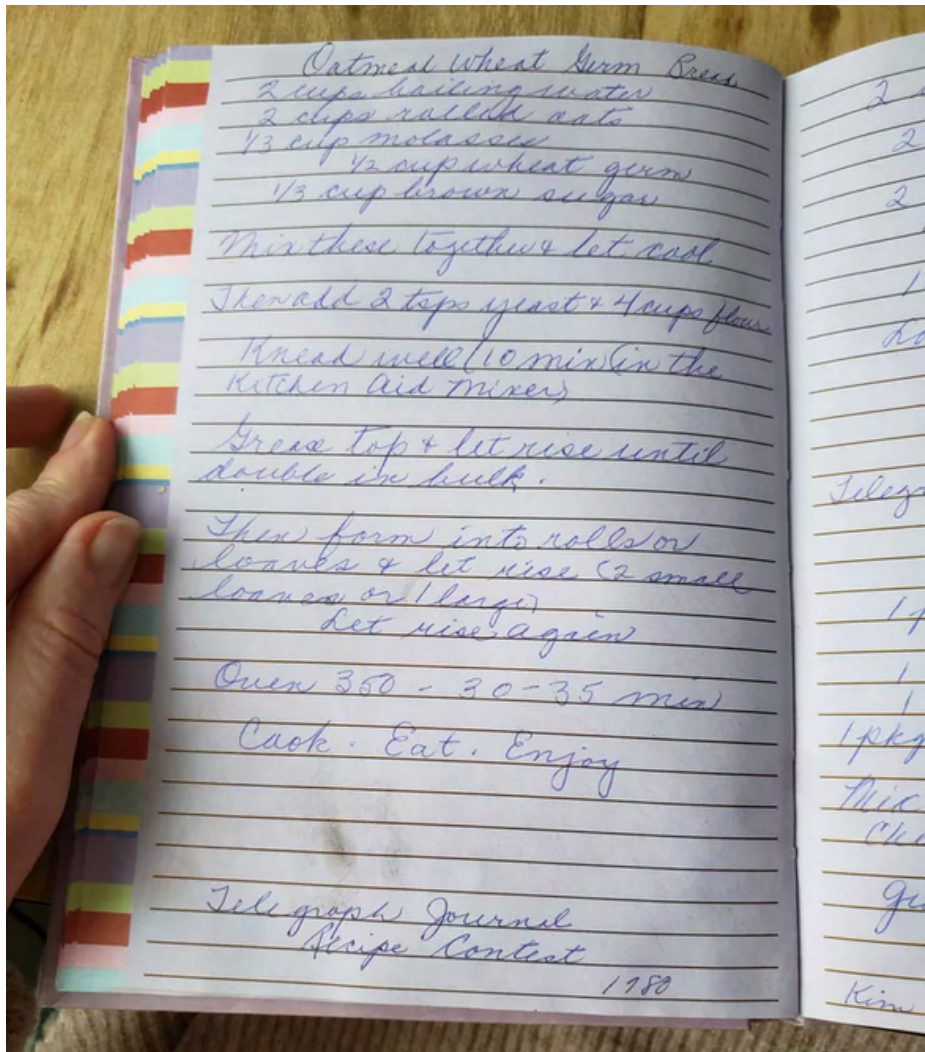 Oatmeal Wheat Germ Bread
2 cups boiling water
2 cups rolled oats
1/3 cup molasses
1/2 cup wheat germ
1/3 cup brown sugar
Mix these together & let cool
Then add 2 tsps yeast & 4 cups flour
Knead well (10 min) (in the
Kitchen Aid Mixer)
Grease top & let rise until
double in bulk.
Then form into rolls or
loaves & let rise (2 small
loaves or 1 large)
Let rise again
Oven 350 - 30-35 min
Cook. Eat. Enjoy
Telegraph Journal
Recipe Contest
1980
2
2
2
1
Telegr
1 p
1
1
1 pkg
Mix
Che
Kim